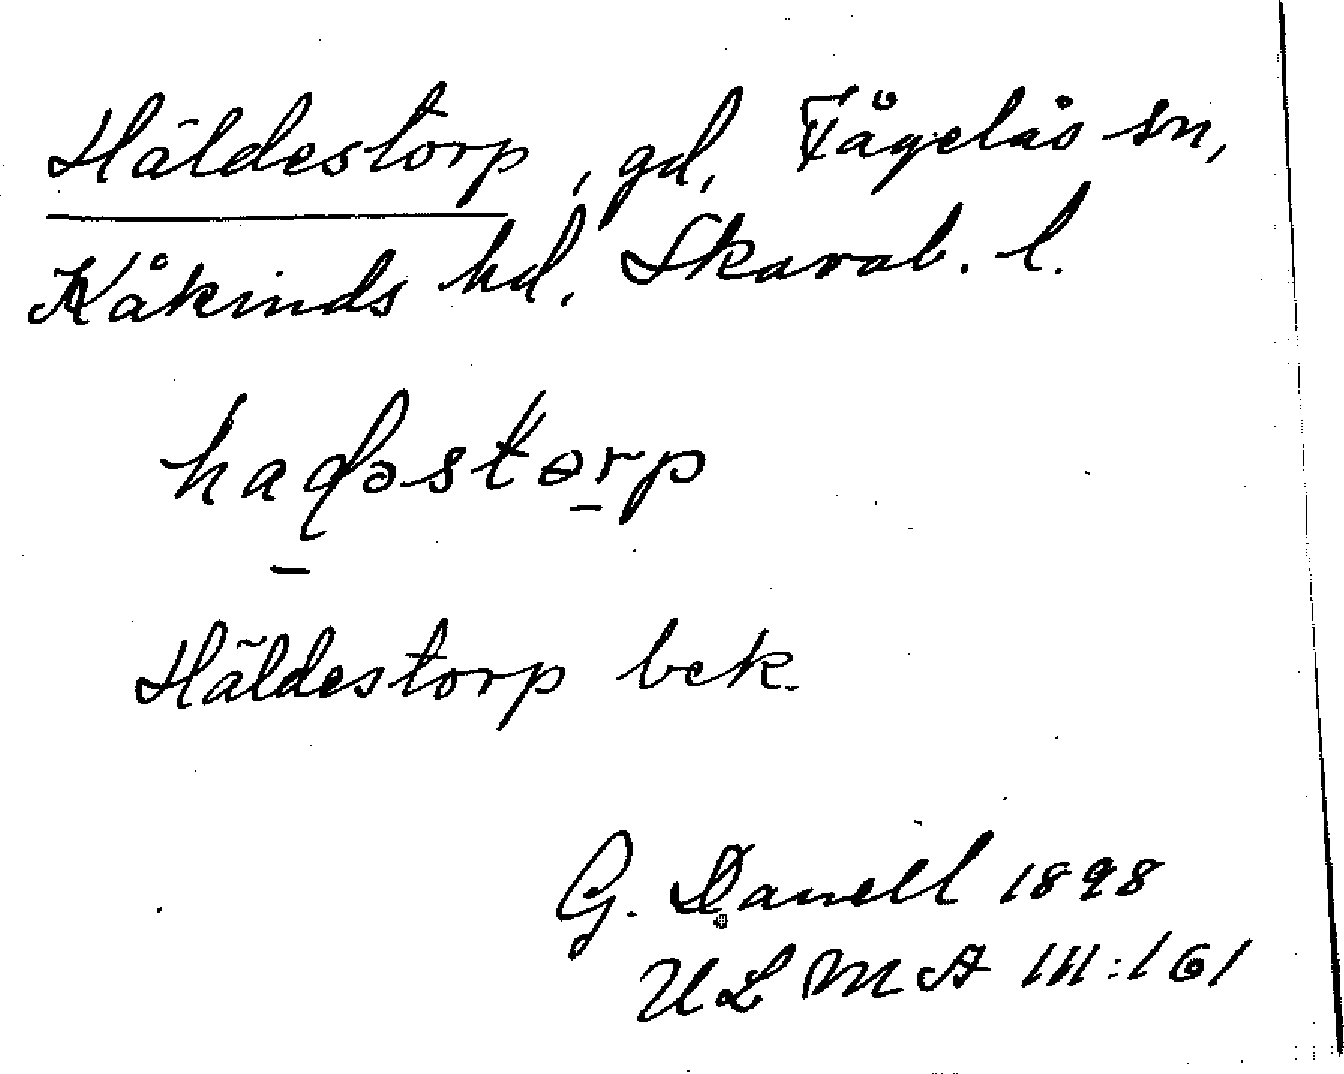 Häldestorp, gd, Fågelås sn,
Kåkinds hd, Skarab. l.
haɖəstərp
Häldestorp bek.
G. Danell 1898
ULMA 111:161